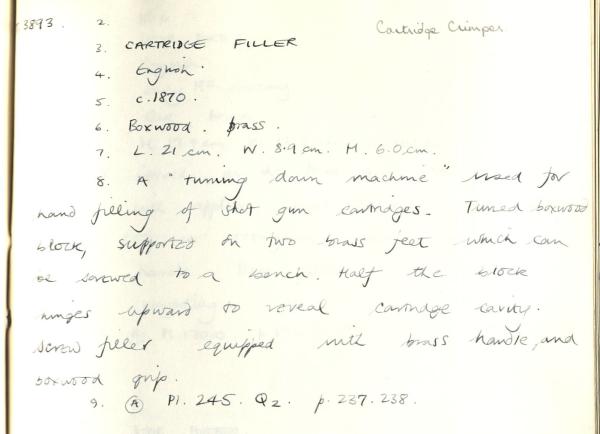 3893. 2. Cartridge Crimper
3. CARTRIDGE FILLER
4. English.
5. c.1870.
6. Boxwood. brass.
7. L. 21 cm. W. 8.9 cm. H. 6.0 cm.
8. A "turning down machine" used for
hand filling of shot gun cartridges. Turned boxwood
block, supported on two brass feet which can
be screwed to a bench. Half the block
hinges upward to reveal cartridge cavity.
Screw filler equipped with brass handle, and
boxwood grip.
9. A Pl. 245. Q2. p. 237. 238.